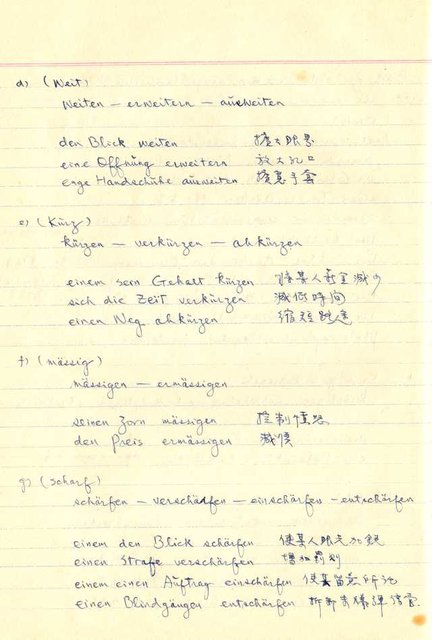 d) (Weit)
weiten — erweitern — ausweiten
den Blick weiten 擴大眼界
eine Öffnung erweitern 放大孔口
enge Handschühe ausweiten 手套
e) (Kürz)
kürzen — verkürzen — abkürzen
einem sein Gehalt kürzen 將某人薪金減少
sich die Zeit verkürzen 減低時间
einen Weg abkürzen 縮短路途
f) (mässig)
mässigen — ermässigen
seinen Zorn mässigen 控制憤怒
den Preis ermässigen 減價
g) (scharf)
schärfen — verschärfen — einschärfen — entschärfen
einem den Blick schärfen 使某人眼光加銳
einen Strafe verschärfen 增加罰則
einem einen Auftrag einschärfen 使某留意所託
einen Blindgängen entschärfen 拆卸未爆彈信管